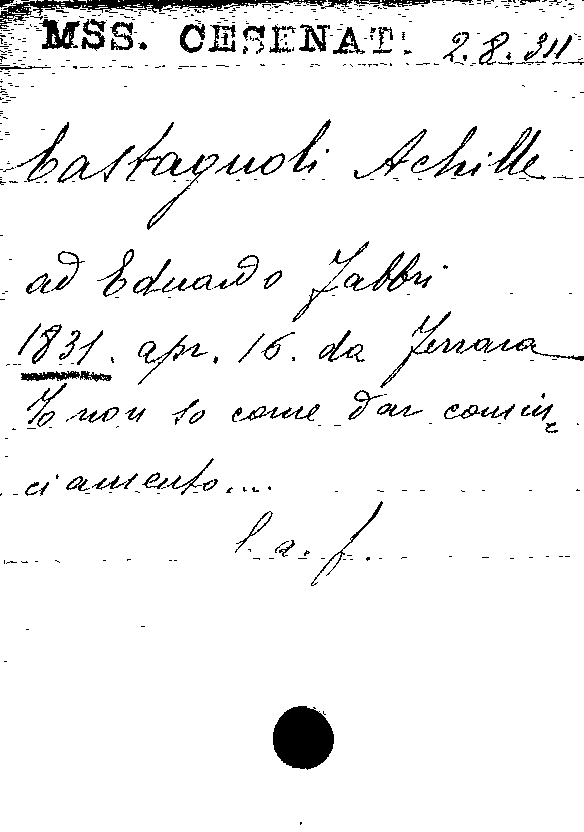 MSS. CESENAT. 2.8.311
Castagnoli Achille
ad Eduardo Fabbri
1831. apr. 16. da Ferrara
Io non so come dar comin-
ciamento...
l. a. f.